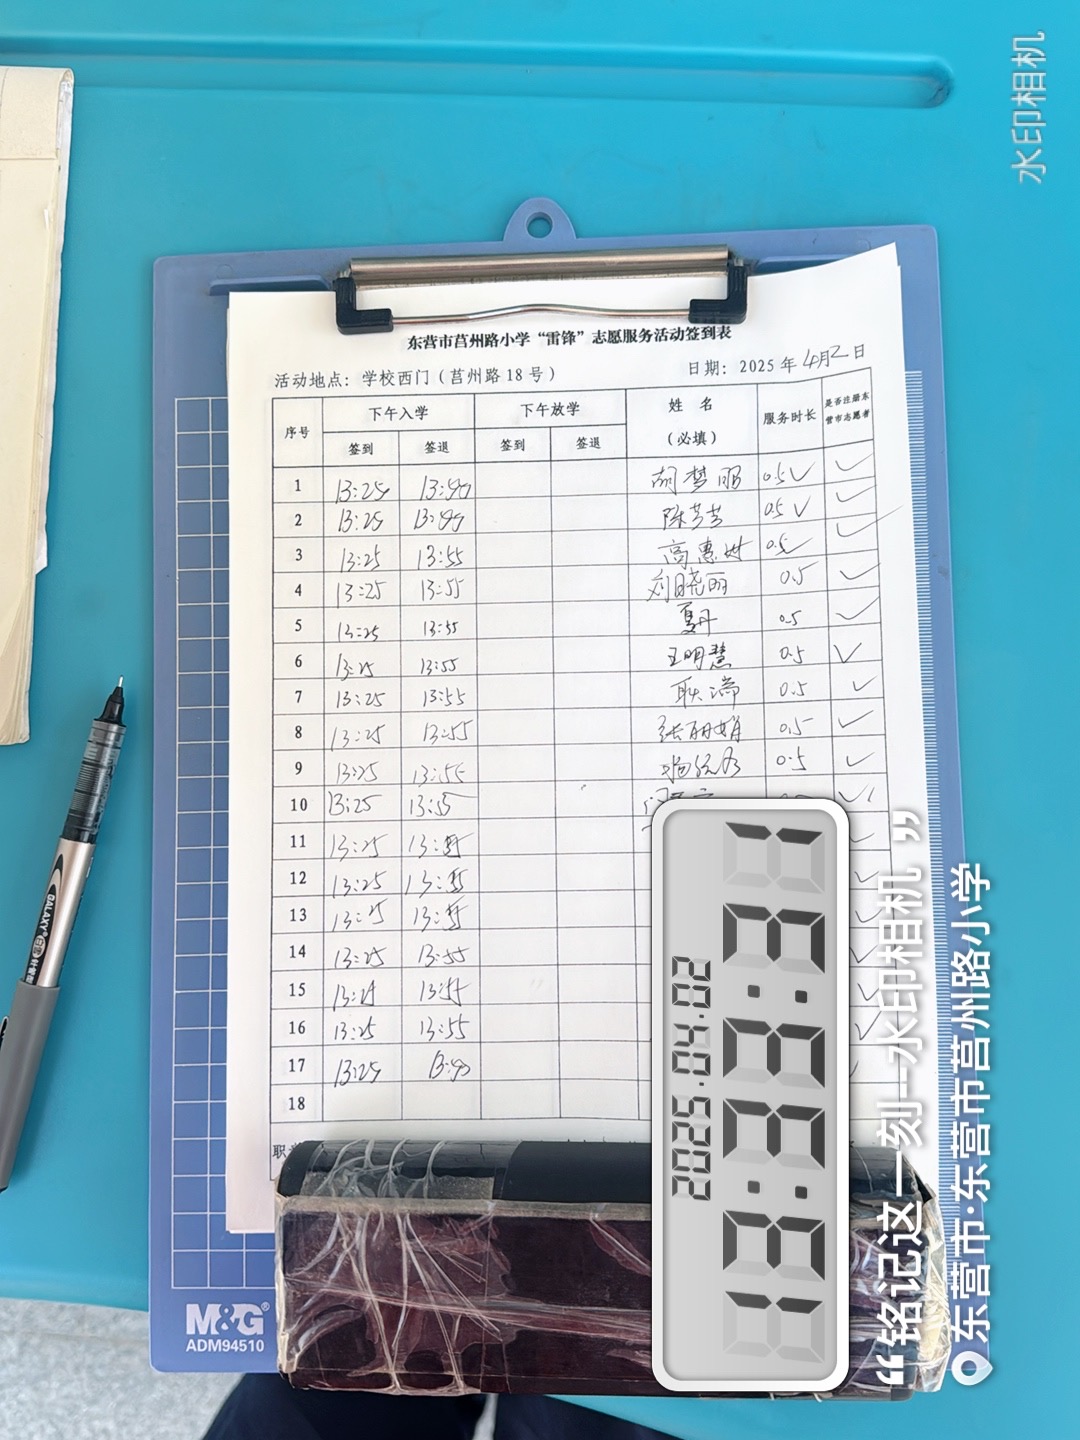 东营市莒州路小学“雷锋”志愿服务活动签到表
活动地点：学校西门（莒州路18号） 日期：2025年4月2日
序号 下午入学 下午放学 姓名（必填） 服务时长 是否注册东营市志愿者
签到 签退 签到 签退
1 13:25 0.5✓ ✓
2 13:25 陈芳芳 0.5✓ ✓
3 13:25 13:55 0.5✓ ✓
4 13:25 13:55 刘晓丽 0.5 ✓
5 13:25 13:55 夏丹 0.5 ✓
6 13:25 13:55 王明慧 0.5 ✓
7 13:25 13:55 耿瑞 0.5 ✓
8 13:25 13:55 张丽娟 0.5 ✓
9 13:25 13:55 0.5 ✓
10 13:25 13:55 ✓
11 13:25 13:55
12 13:25 13:55
13 13:25 13:55
14 13:25 13:55
15 13:25 13:55
16 13:25 13:55
17 13:25
18
职
M&G
ADM94510
GALAXY
水印相机
2025.04.02
“铭记这一刻—水印相机”
东营市·东营市莒州路小学